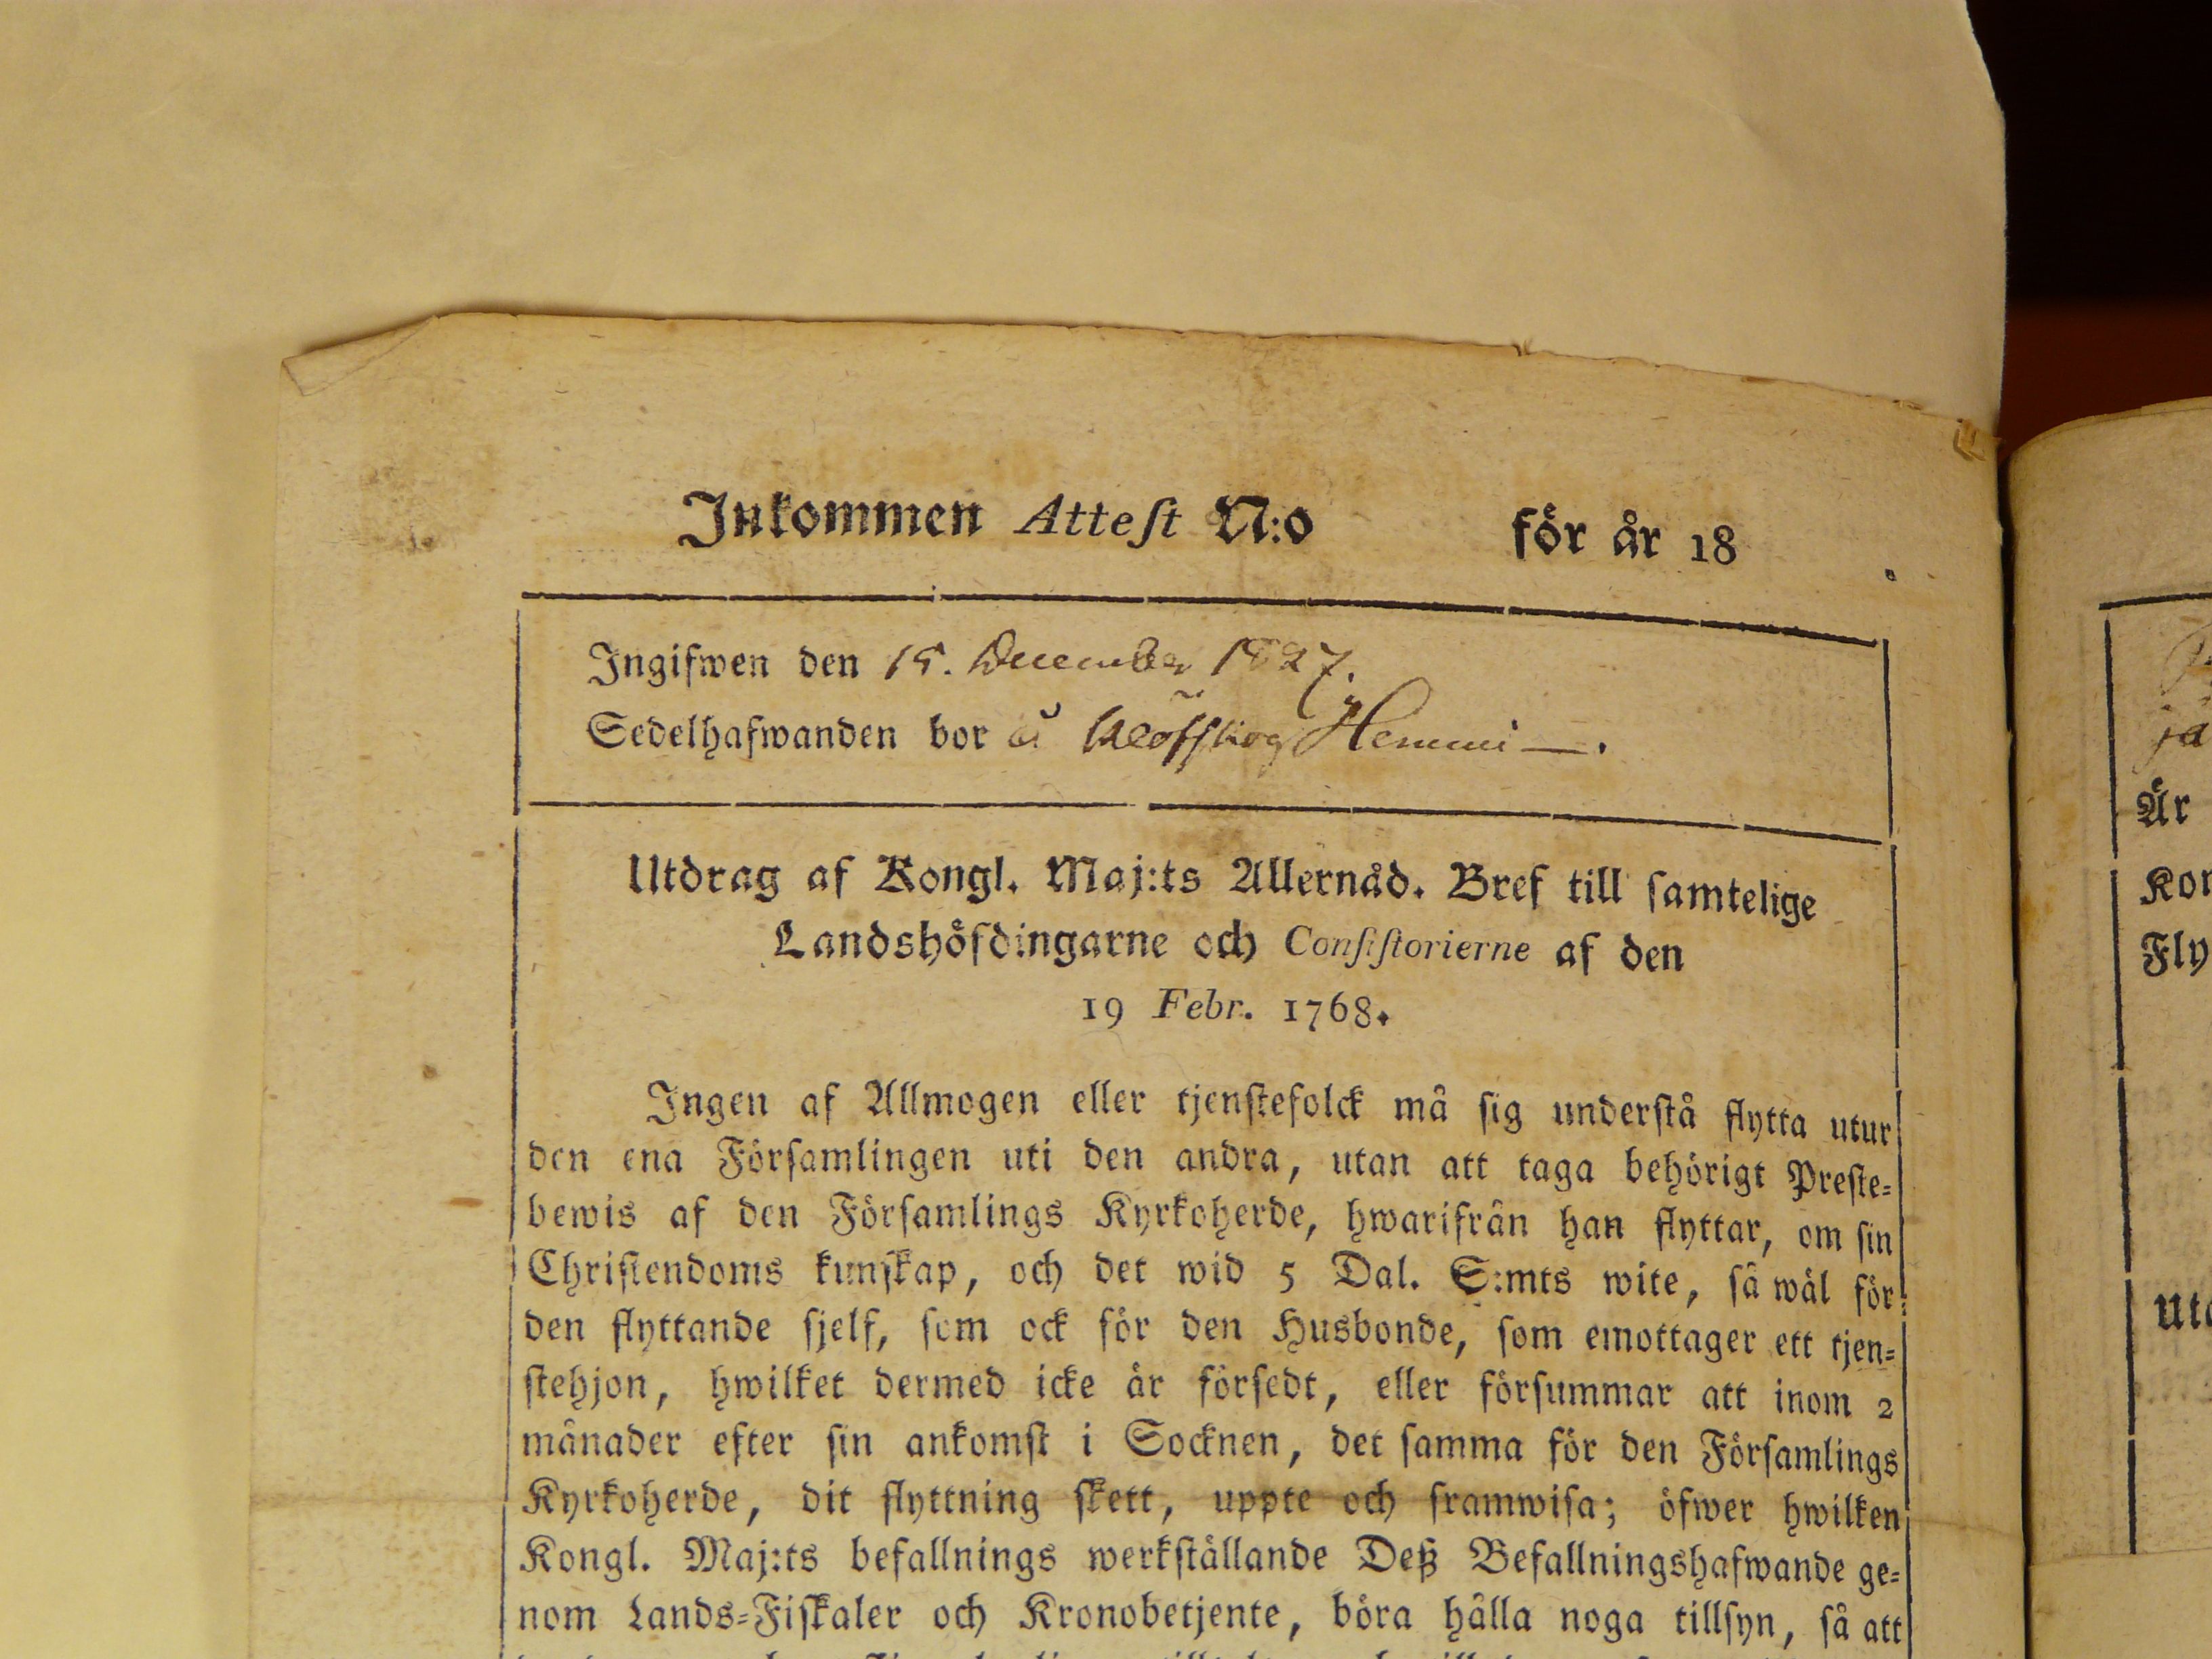 Inkommen Attest N:o för år 18
Ingifwen den 15. December 1827.
Sedelhafwanden bor å
Utdrag af Kongl. Maj:ts Allernåd. Bref till samtelige
Landshöfdingarne och Consistorierne af den
19 Febr. 1768.
Ingen af Allmogen eller tjenstefolck må sig understå flytta utur
den ena Församlingen uti den andra, utan att taga behörigt Preste=
bewis af den Församlings Kyrkoherde, hwarifrån han flyttar, om sin
Christendoms kunskap, och det wid 5 Dal. S:mts wite, så wäl för
den flyttande sjelf, som ock för den Husbonde, som emottager ett tjen=
stehjon, hwilket dermed icke är försedt, eller försummar att inom 2
månader efter sin ankomst i Socknen, det samma för den Församlings
Kyrkoherde, dit flyttning skett, uppte och framwisa; öfwer hwilken
Kongl. Maj:ts befallnings werkställande Deß Befallningshafwande ge=
nom Lands=Fiskaler och Kronobetjente, böra hålla noga tillsyn, så att
ja
Är
Kon
Fly